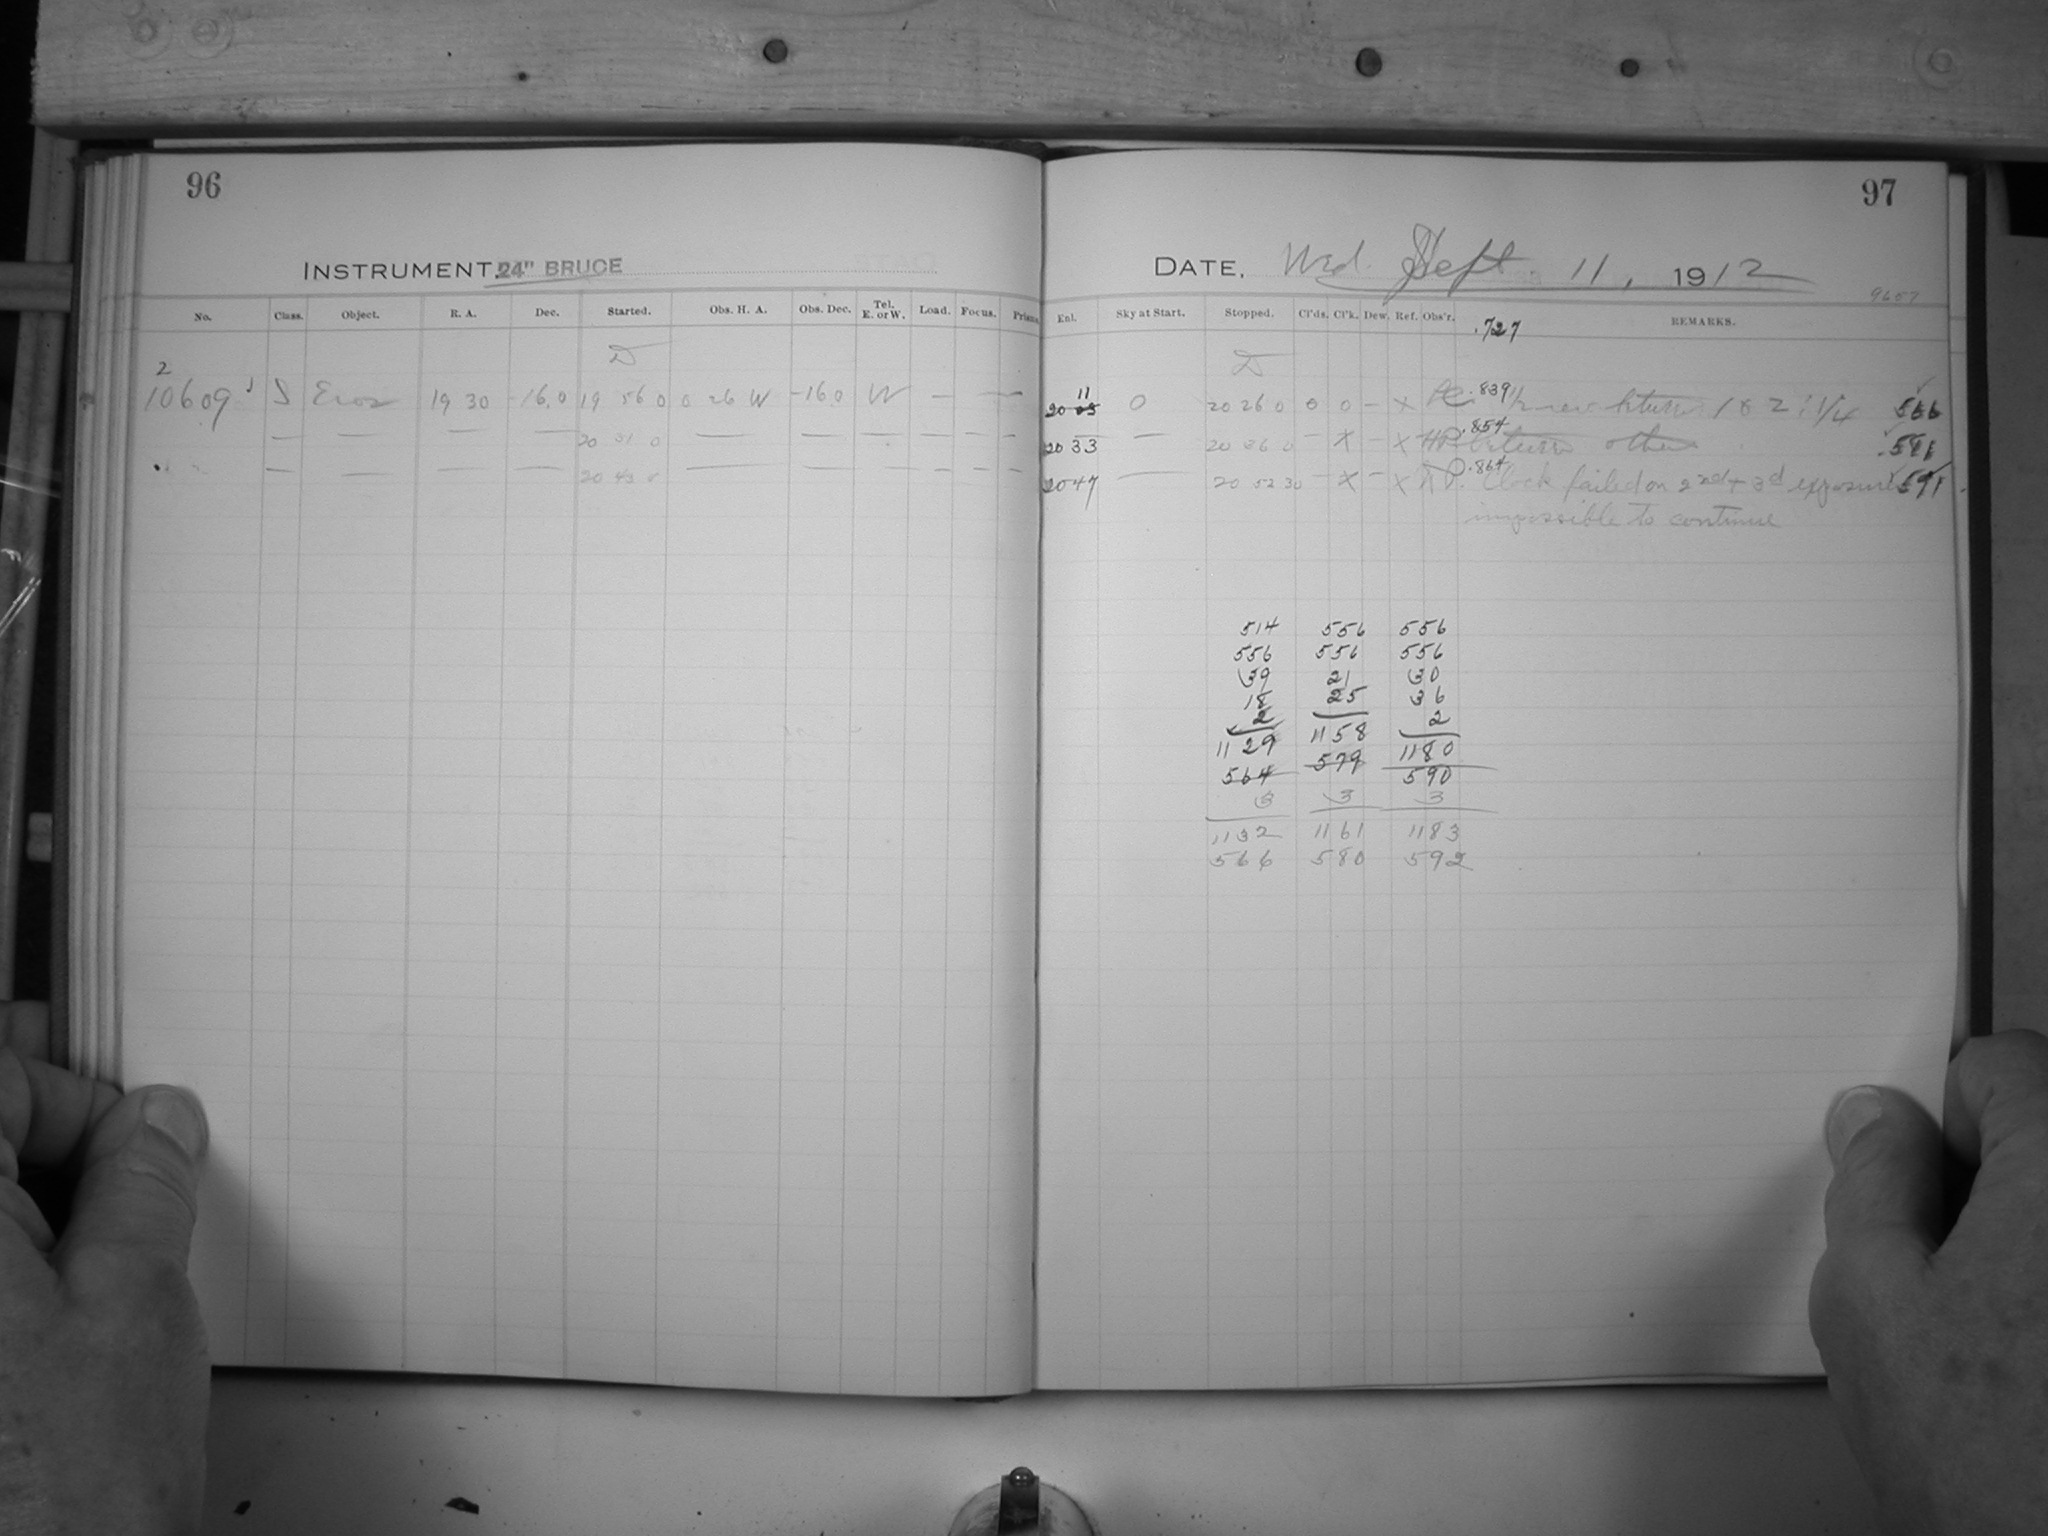 96
INSTRUMENT, 24" BRUCE
No. Class. Object. R. A. Dec. Started. Obs. H. A. Obs. Dec. Tel. E. or W. Load. Focus. Prism.
D
2
10609 S Eros 19 30 -16.0 19 56 0 0 26 W -16 0 W — — —
— — — — 20 31 0 — — — — — —
— — — — 20 43 — — — — — —
97
DATE, Wed. Sept 11, 1912
9657
Enl. Sky at Start. Stopped. Cl'ds. Cl'k. Dew. Ref. Obs'r. .727 REMARKS.
D
11
20 05 0 20 26 0 0 0 – x .839 1 & 2 : 1/4
20 33 — 20 36 0 – x – x .854 other
2047 — 20 52 30 – x – x .864 Clock failed on 2nd + 3d exposure 591
impossible to continue
514 556 556
556 556 556
39 21 30
18 25 36
2 2
1129 1158 1180
564 579 590
3 3 3
1132 1161 1183
566 580 592